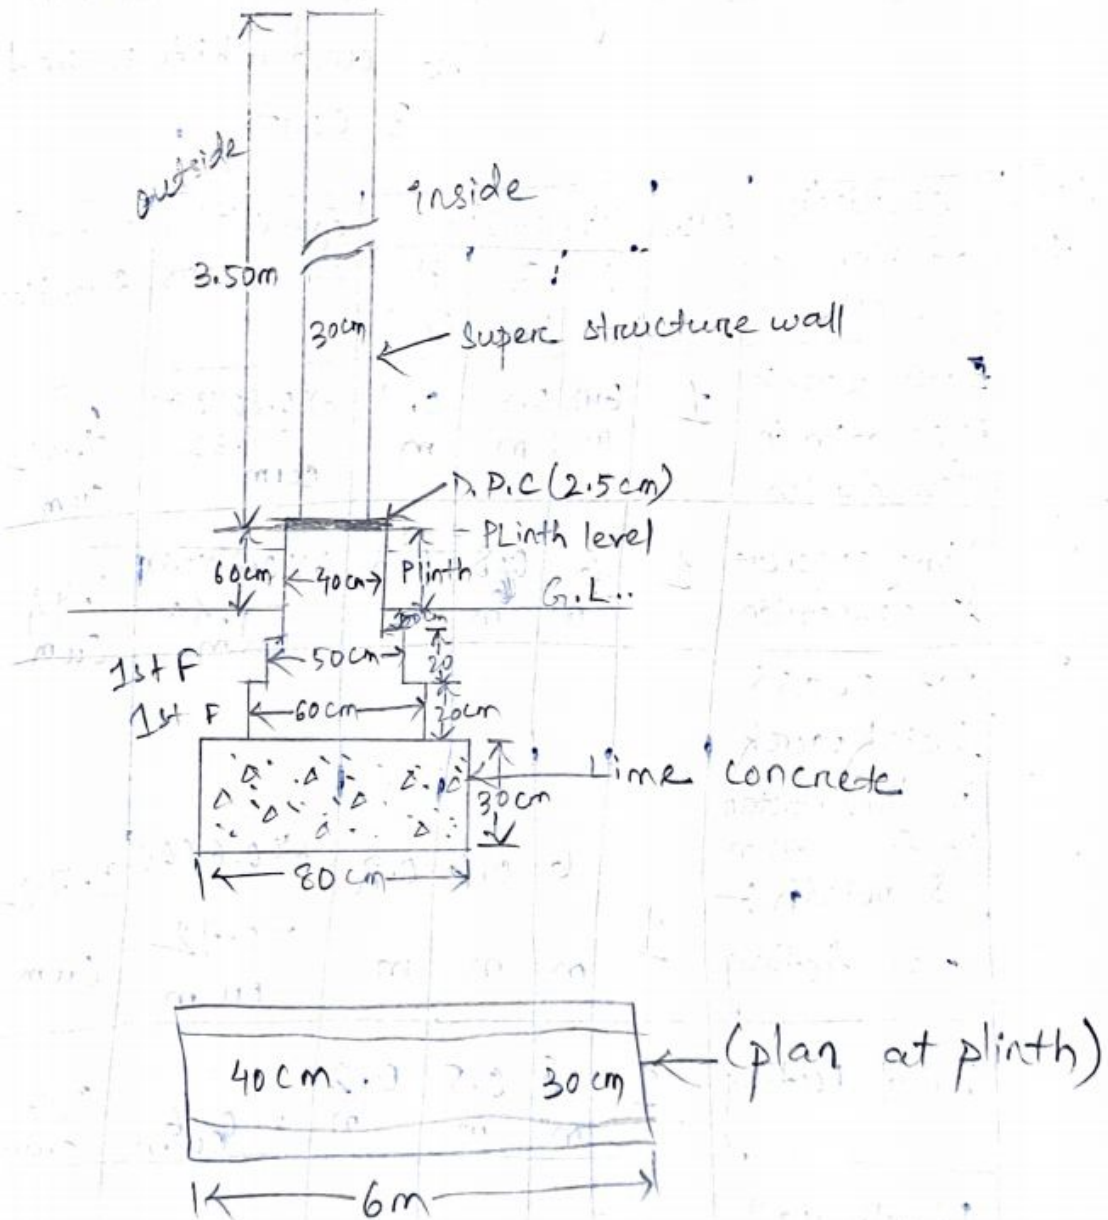 outside
Inside
3.50m
30cm
Super structure wall
D.P.C (2.5cm)
PLinth level
60cm
40cm
Plinth
G.L..
1st F
50cm
20
1st F
60cm
20cm
Lime concrete
30cm
80cm
40cm.
30cm
(plan at plinth)
6m